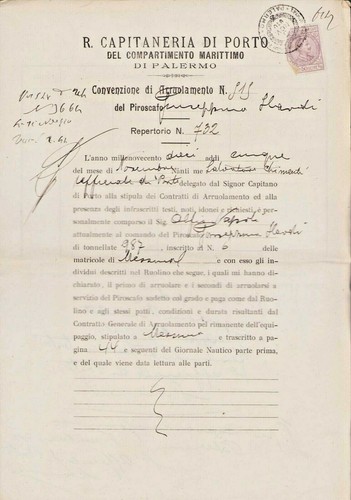 R. CAPITANERIA DI PORTO
DEL COMPARTIMENTO MARITTIMO
DI PALERMO
Convenzione di Arruolamento N. 919
del Piroscafo Giuseppina Ilardi
Repertorio N. 732
L'anno millenovecento dieci addi cinque
del mese di Novembre Ninti me Salvatore
Ufficiale di Porto delegato dal Signor Capitano
di Porto alla stipula dei Contratti di Arruolamento ed alla
presenza degli infrascritti testi, noti, idonei e richiesti, è per-
sonalmente comparso il Sig.
attualmente al comando del Piroscafo Giuseppina Ilardi
di tonnellate 987, inscritto al N. 6 delle
matricole di Messina e con esso gli in-
dividui descritti nel Ruolino che segue, i quali mi hanno di-
chiarato, il primo di arruolare e i secondi di arruolarsi a
servizio del Piroscafo sudetto col grado e paga come dal Ruo-
lino e agli stessi patti, condizioni e durata risultanti dal
Contratto Generale di Arruolamento pel rimanente dell'equi-
paggio, stipulato a Messina e trascritto a pa-
gina 44 e seguenti del Giornale Nautico parte prima,
e del quale viene data lettura alle parti.